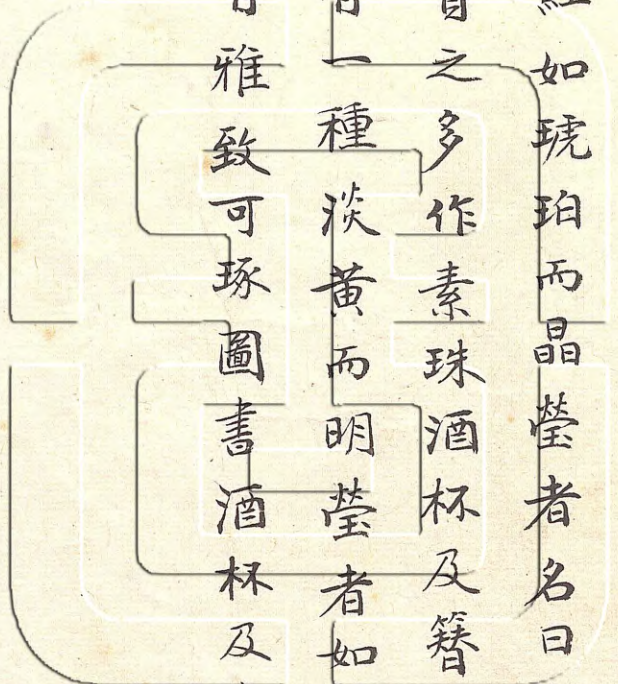 如琥珀而晶瑩者名曰
之多作素珠酒杯及簪
一種淡黃而明瑩者如
雅致可琢圖書酒杯及